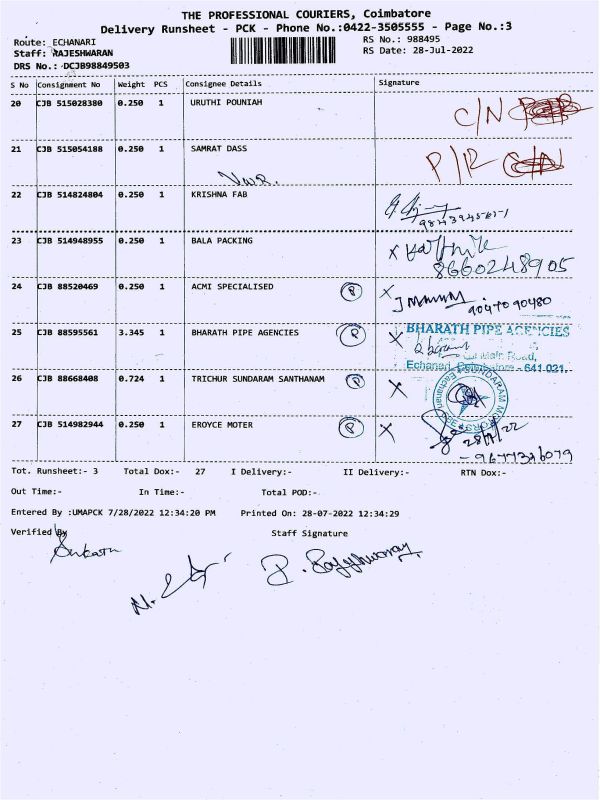 THE PROFESSIONAL COURIERS, Coimbatore
Delivery Runsheet - PCK - Phone No.:0422-3505555 - Page No.:3
Route: ECHANARI RS No.: 988495
Staff: RAJESHWARAN RS Date: 28-Jul-2022
DRS No.: DCJB98849503
S No Consignment No Weight PCS Consignee Details Signature
20 CJB 515028380 0.250 1 URUTHI POUNIAH C/N
21 CJB 515054188 0.250 1 SAMRAT DASS P/R C/N
22 CJB 514824804 0.250 1 KRISHNA FAB
23 CJB 514948955 0.250 1 BALA PACKING X
8660248905
24 CJB 88520469 0.250 1 ACMI SPECIALISED P X
9047090480
25 CJB 88595561 3.345 1 BHARATH PIPE AGENCIES P X BHARATH PIPE AGENCIES
Main Road,
Echanari, Coimbatore - 641 021.
26 CJB 88668408 0.724 1 TRICHUR SUNDARAM SANTHANAM P X
27 CJB 514982944 0.250 1 EROYCE MOTER P X
28/7/22
- 9677326079
Tot. Runsheet:- 3 Total Dox:- 27 I Delivery:- II Delivery:- RTN Dox:-
Out Time:- In Time:- Total POD:-
Entered By :UMAPCK 7/28/2022 12:34:20 PM Printed On: 28-07-2022 12:34:29
Verified By Staff Signature